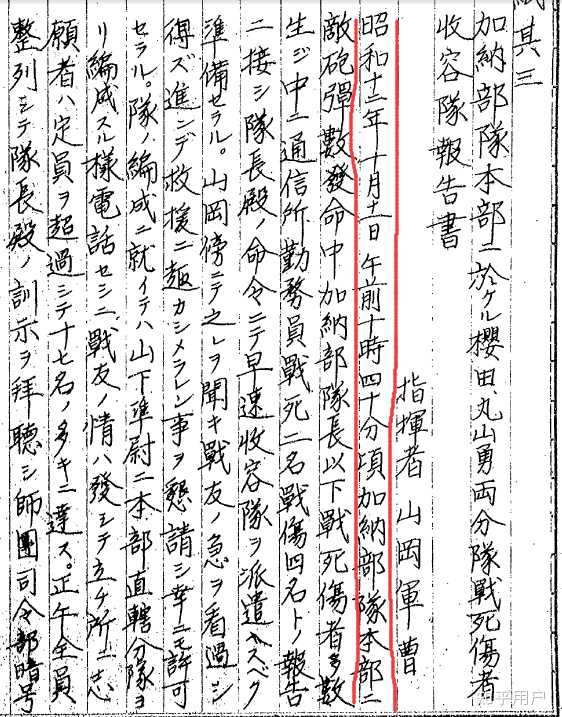 紙其三
加納部隊本部ニ於ケル櫻田、丸山勇両分隊戦死傷者
收容隊報告書
指揮者 山岡軍曹
昭和十二年十月十一日午前十時四十分頃加納部隊本部ニ
敵砲彈數發命中加納部隊長以下戰死傷者多數
生ジ中ニ通信所勤務員戰死二名戰傷四名トノ報告
ニ接シ隊長殿ノ命令ニテ早速收容隊ヲ派遣スベク
準備セラル。山岡傍ニテ之レヲ聞キ戰友ノ急ヲ看過シ
得ズ進ンデ救援ニ趣カシメラレン事ヲ懇請シ幸ニモ許可
セラル。隊ノ編成ニ就イテハ山下準尉ニ本部直轄分隊ヨ
リ編成スル様電話セシニ、戰友ノ情ハ發シテ立チ所ニ志
願者ハ定員ヲ超過シテ十七名ノ多キニ達ス。正午全員
整列シテ隊長殿ノ訓示ヲ拜聽シ師團司令部暗号
知乎用户